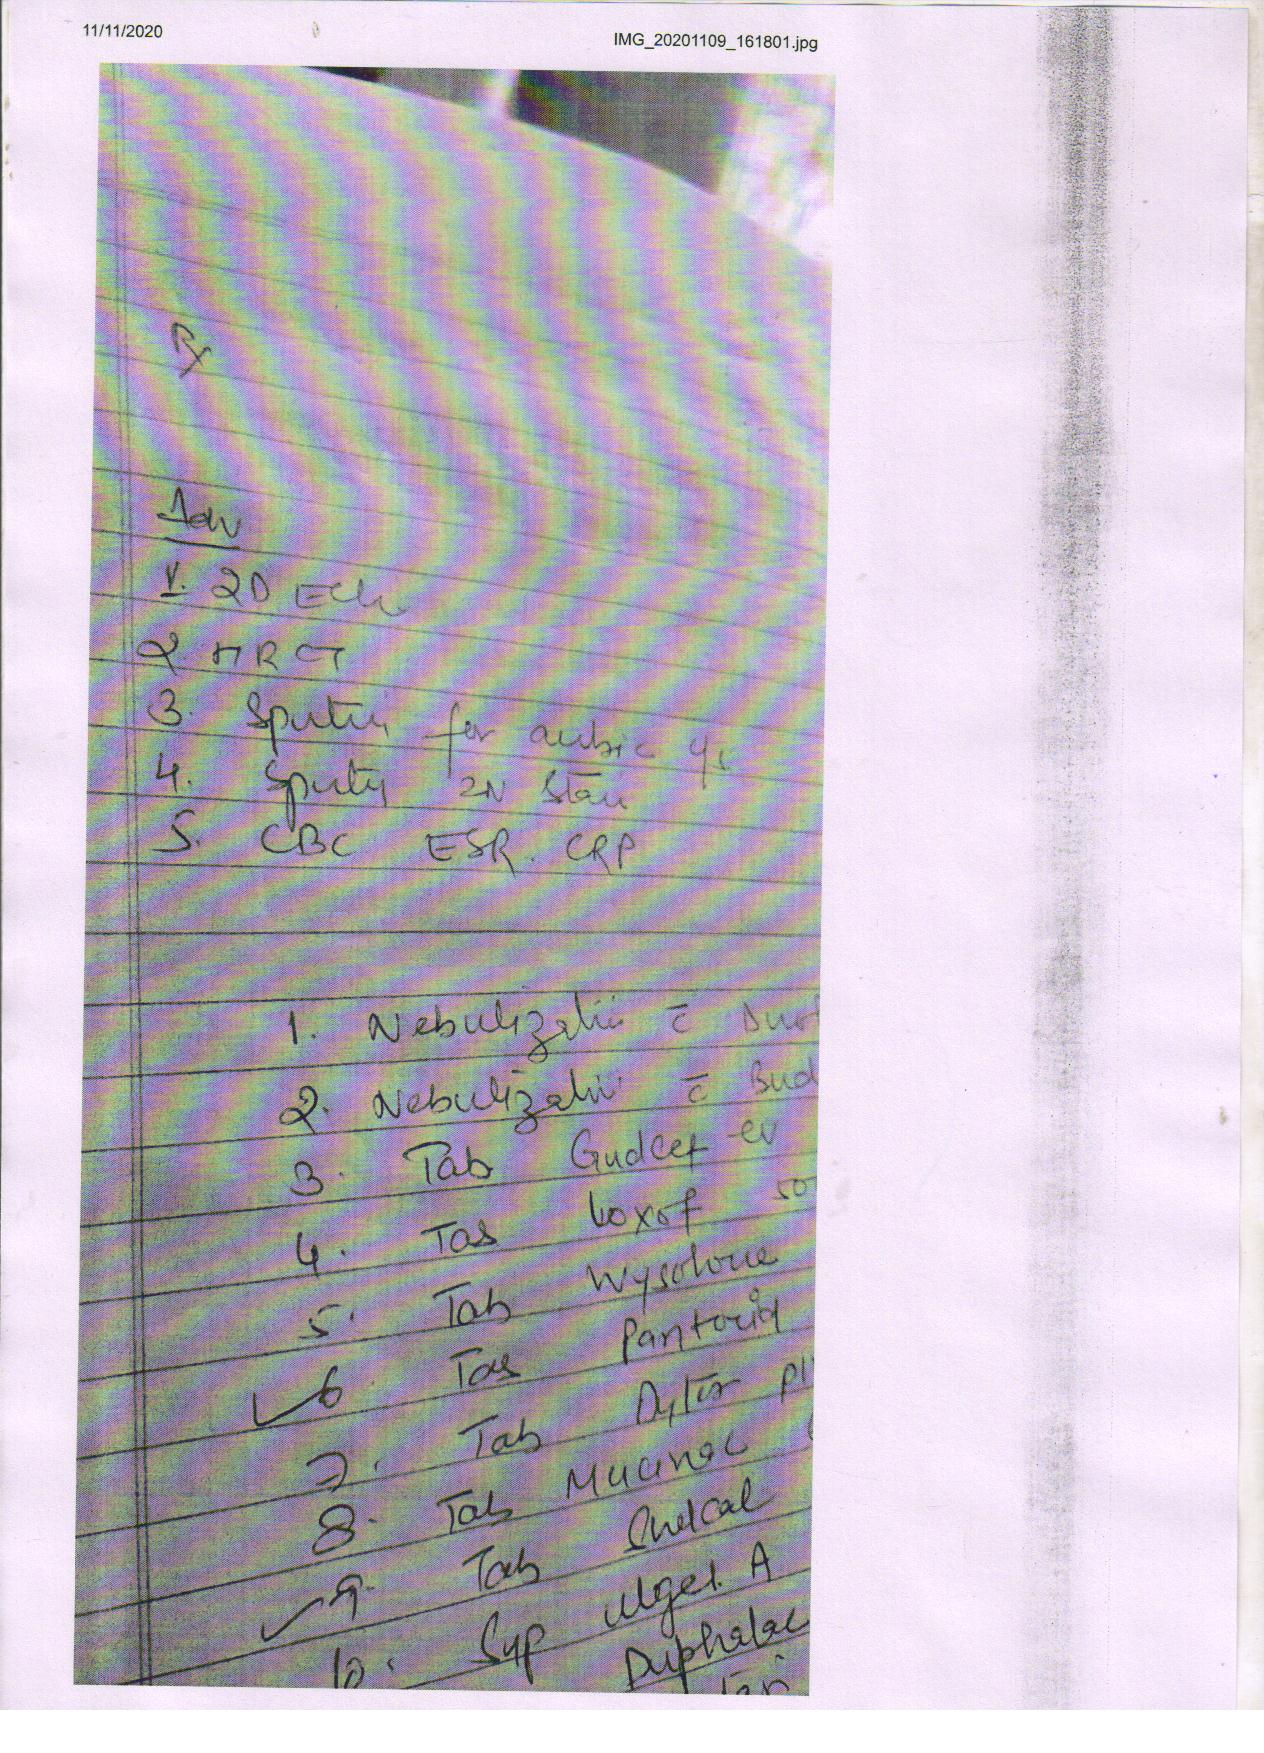 11/11/2020 IMG_20201109_161801.jpg
Rx
Adv
1. 2D Echo
2. HRCT
3. Sputum for c/s
4. Sputum ZN Stain
5. CBC ESR. CRP
1. Nebulization c̄ Duo
2. Nebulization c̄ Bud
3. Tab Gudcef-cv
4. Tab Loxof 50
5. Tab Wysolone
6 Tab Pantocid
7. Tab Dytor pl
8. Tab Mucinac
9. Tab Shelcal
10. Syp A
Duphalac